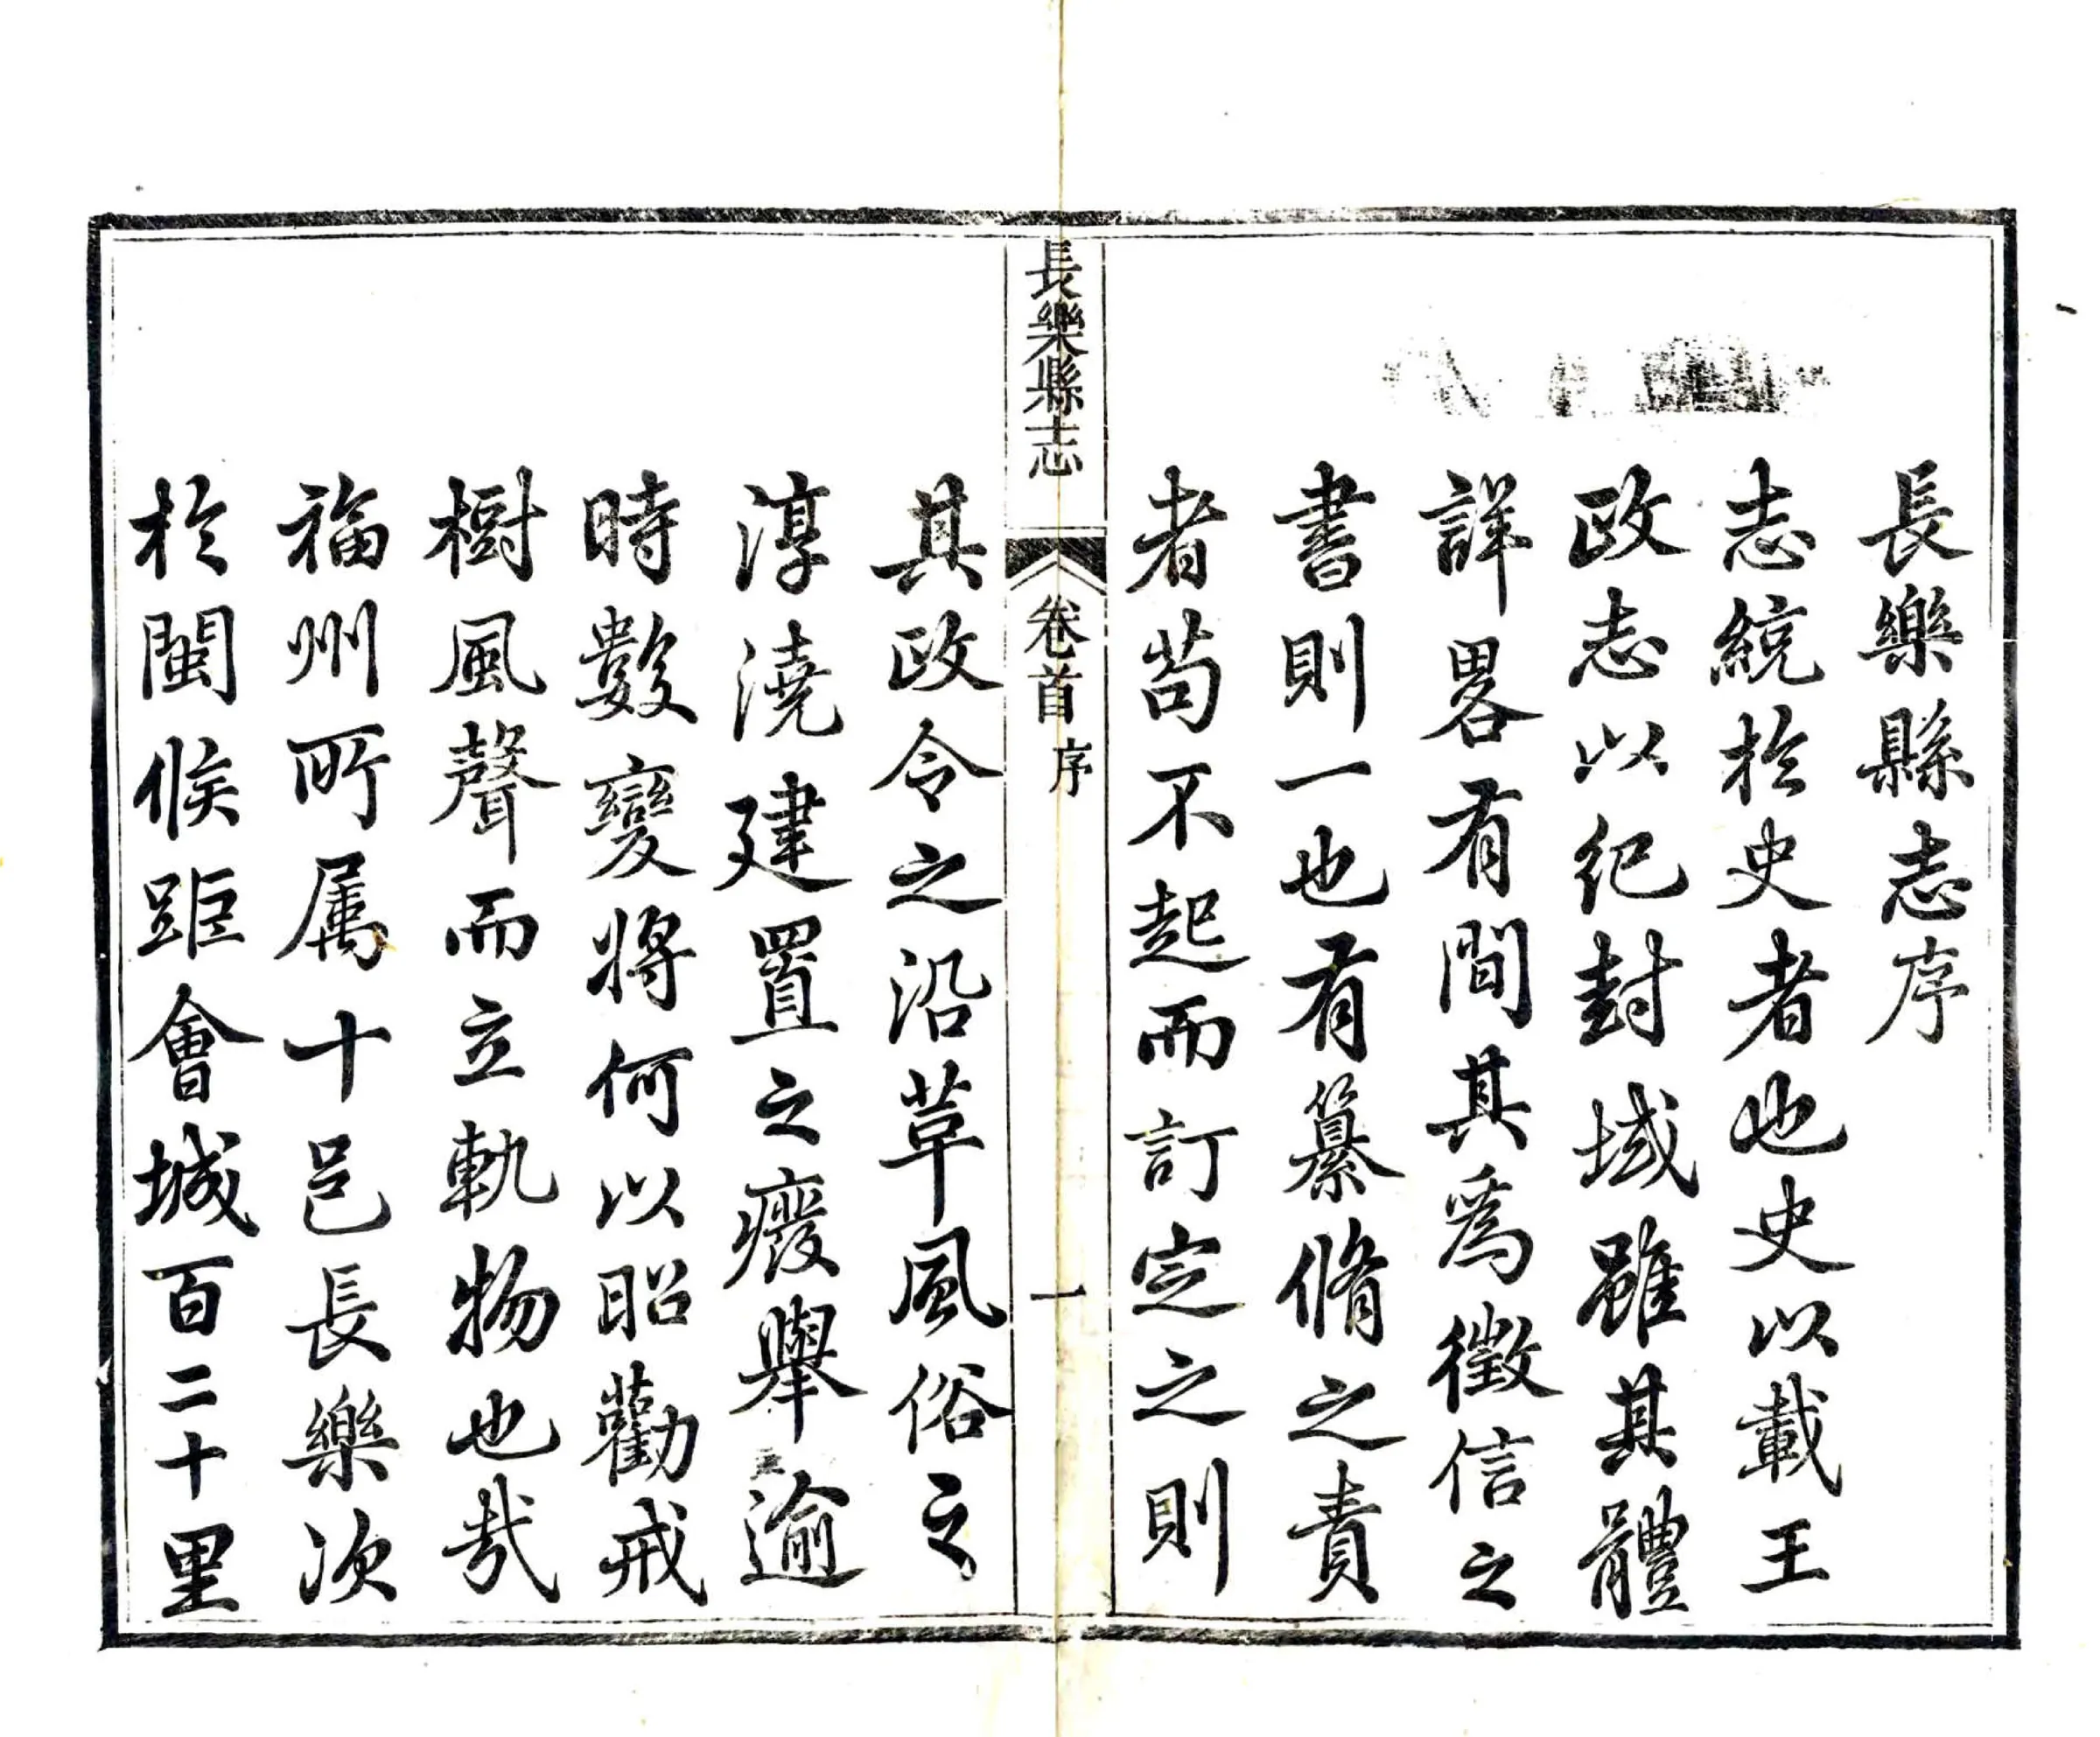 長樂縣志序
志統於史者也史以載王
政志以紀封域雖其體
詳畧有間其爲徵信之
書則一也有纂脩之責
者苟不起而訂定之則
長樂縣志
卷首
序
一
其政令之沿革風俗之
淳澆建置之癈舉逾
時數變將何以昭勸戒
樹風聲而立軌物也哉
福州所属十邑長樂次
於閩候距會城百二十里